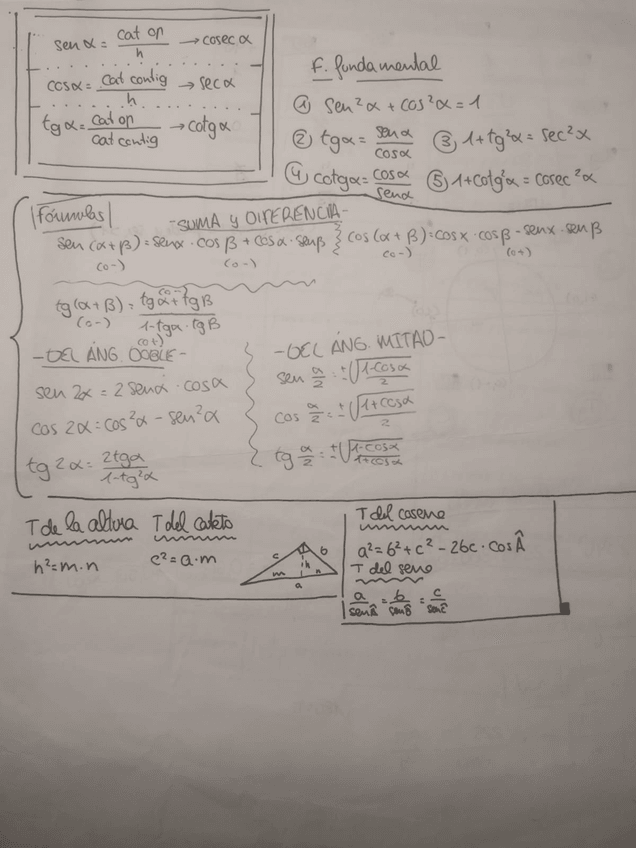 sen α = cat op / h → cosec α
cos α = cat contig / h → sec α
tg α = cat op / cat contig → cotg α
F. fundamental
① sen²α + cos²α = 1
② tg α = sen α / cos α ③ 1 + tg²α = sec²x
④ cotg α = cos α / sen α ⑤ 1 + cotg²α = cosec²α
Fórmulas - SUMA y DIFERENCIA -
sen (α + β) = senα · cos β + cos α · sen β } cos (α + β) = cosx · cosβ - senx · sen β
(o -) (o -) (o -) (o +)
(o -)
tg (α + β) = tg α + tg β / 1 - tgα · tg β
(o -) (o +)
- DEL ÁNG. DOBLE -
sen 2α = 2 senα · cosα
cos 2α = cos²α - sen²α
tg 2α = 2tgα / 1 - tg²α
- DEL ÁNG. MITAD -
sen α/2 = ±√(1 - cosα / 2)
cos α/2 = ±√(1 + cosα / 2)
tg α/2 = ±√(1 - cosα / 1 + cosα)
T de la altura T del cateto
h² = m · n c² = a · m
c b
m h n
a
T del coseno
a² = b² + c² - 2bc · cos Â
T del seno
a / sen Â = b / sen B̂ = c / sen Ĉ